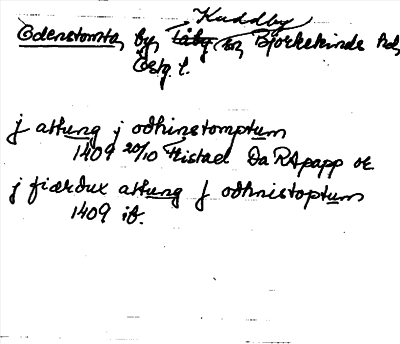 Kuddby
Odenstomta, by, Tåby sn, Björkekinds hd,
Östg. l.
j attung j odhinstomptum
1409 20/10 Kistad Da RApapp or.
j fiærdux attung j odhnistoptum
1409 ib.